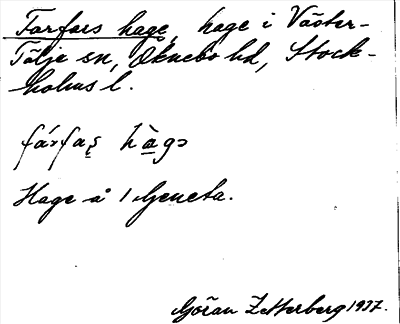 Farfars hage, hage i Väster-
Tälje sn, Öknebo hd, Stock-
holms l.
fárfas̨ hàgə
Hage å 1 Geneta.
Göran Zetterberg 1937.